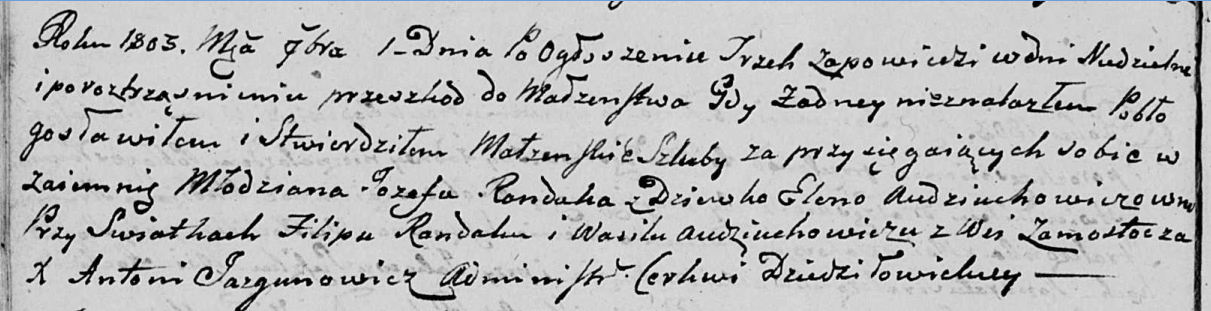 Roku 1803. Mca 9bra 1 Dnia Po Ogłoszeniu Trzech Zapowiedzi w dni Niedzielne
i poroztrząsnieniu przeszkod do Małżenstwa Gdy Zadney nieznalazłem Pobło
gosławiłem i Stwierdziłem Małzenskie Szluby za przysięgaiących sobie w
zaiemnie Młodziana Jozefa Randaka z Dziewko Eleno Audziuchowiczowno
Przy Swiatkach Filipu Randaku i Wasilu Audziuchowiczu z Wsi Zamostocza
X Antoni Jazgunowicz Administr. Cerkwi Dziedziłowickiey